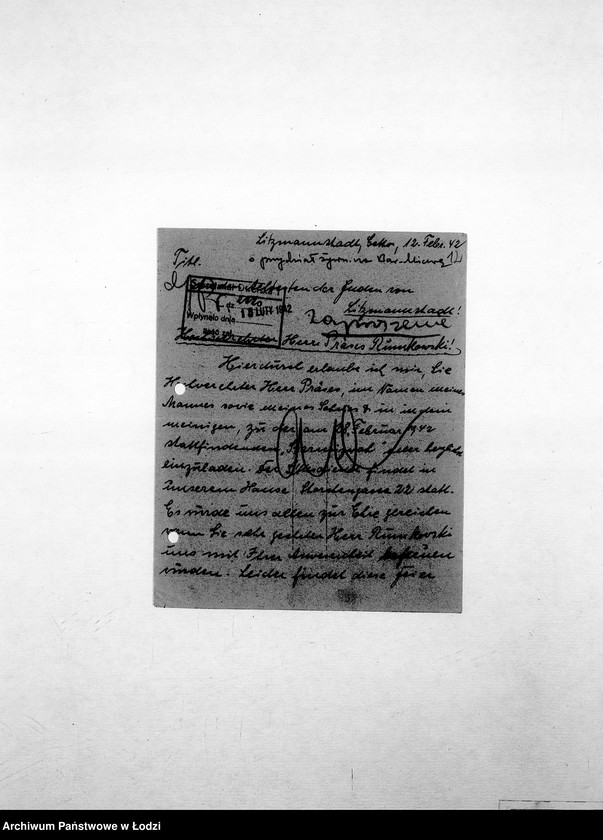 Litzmannstadt, Getto, 12. Febr. 42
o przydział żywn. na Bar-Micwę
Titl.
Sekretariat
Ältesten der Juden von
Litzmannstadt!
18 LUTY 1942
Wpłynęło dnia
zaproszenie
Hochverehrter Herr Präses Rumkowski!
Hierdurch erlaube ich mir, Sie
Hochverehrter Herr Präses, im Namen meines
Mannes sowie meines Sohnes & in in dem
meinigen, zu der am 28. Februar 1942
stattfindenden „Barmizwah" Feier herzlich
einzuladen. Der findet in
unserem Hause Storchengasse 22 statt.
Es würde uns allen zur Ehre gereichen
wenn Sie sehr geehrter Herr Rumkowski
uns mit Ihrer Anwesenheit beehren
würden. Leider findet diese Feier
Archiwum Państwowe w Łodzi